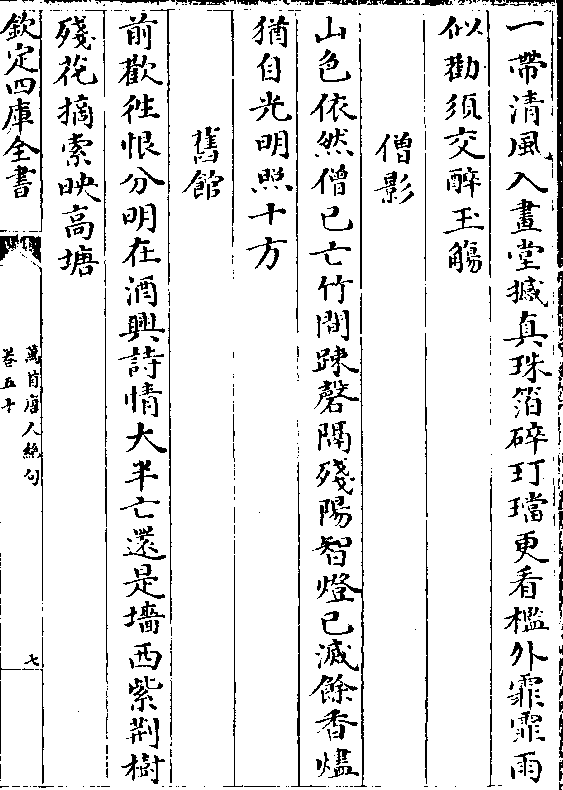 一帶清風入畫堂撼真珠箔碎玎璫更看檻外霏霏雨
似勸須交醉玉觴
僧影
山色依然僧已亡竹間踈磬隔殘陽智燈已滅餘香燼
猶自光明照十方
舊館
前歡徃恨分明在酒興詩情大半亡還是墻西紫荆樹
殘花摘索映高塘
欽定四庫全書
萬首唐人絶句
卷五十
七